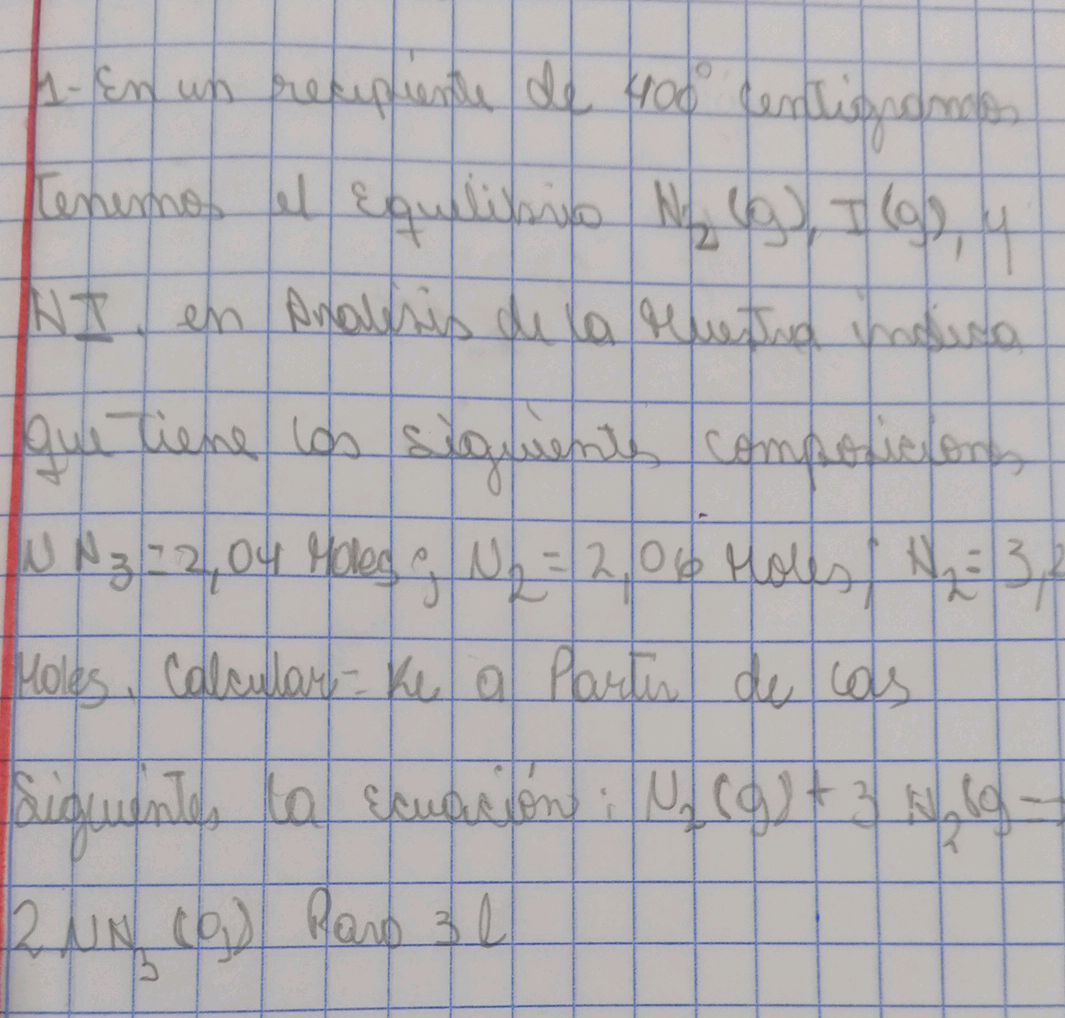 1- En un recipiente de 400° centigramos
Tenemos el Equilibrio N₂ (g), I (g), y
NI, en Analisis de la Muestra indica
que Tiene los siguientes composiciones
NN₃ = 2,04 Moles; N₂ = 2,06 Moles; N₂ = 3,2
Moles. Calcular = Kc a Partir de las
Siguientes la ecuación: N₂ (g) + 3 N₂ (g →
2 NN₃ (g) Para 3 l